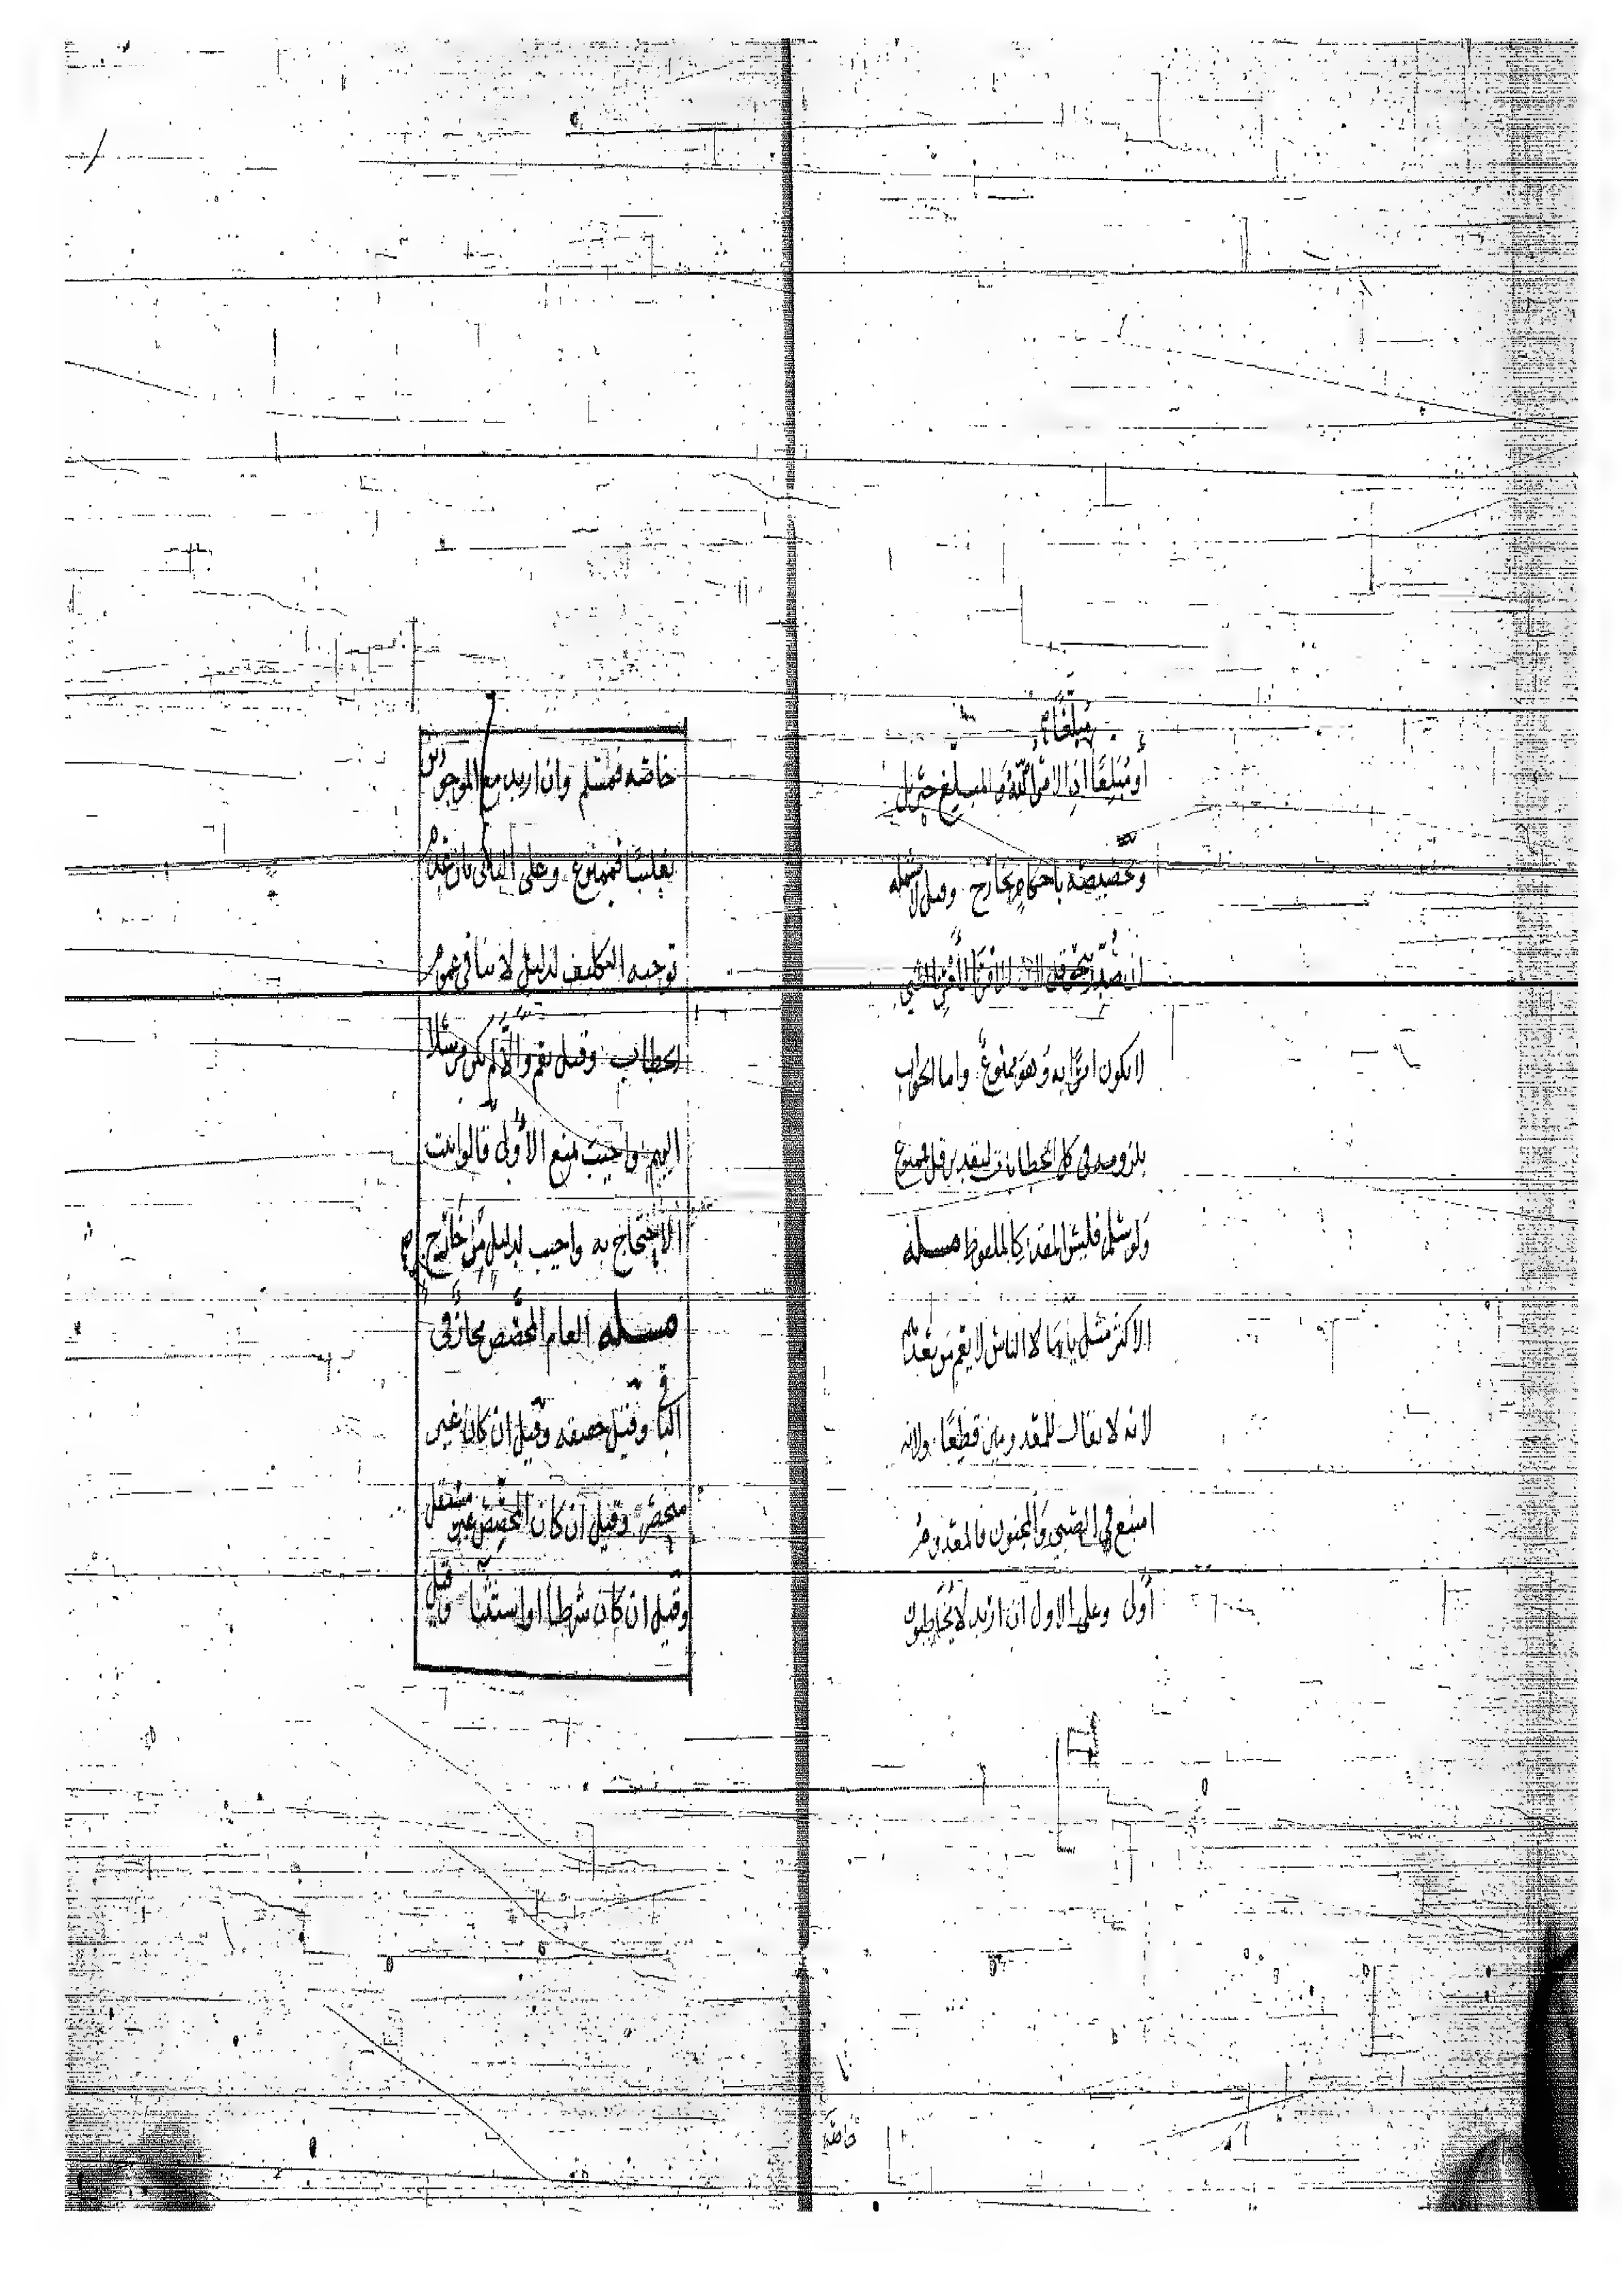 مُبَلِّغًا
أو مُبَلِّغًا اذِ الامر للّٰه والمبلّغ جبريل
وتخصيصه باحكام بخارج وقيل لا شمله
ان صُدِّر بنحو قل
لا يكون امرًا به وهو ممنوع واما الجواب
بلزومه فى كل الخطابات لتقدير قل فممنوع
ولو سُلّم فليس المقدر كالملفوظ مسله
الاكثر مثل يايها الناس لا يعم من بعدهم
لانه لا يقال للمعدومين قطعًا ولانه
امتنع فى الصبى والمجنون فالمعدوم
أولى وعلى الاول ان اريد لا يُخاطبون
خاصّة
خاصّه فمسّلم وان اريد مع الموجودين
تغليبًا فممنوع وعلى الثانى بان عدم
توجيه التكليف لدليل لا ينافى عموم
الخطاب وقيل نعم والّا لم يكن مرسلا
اليهم واجيب بمنع الأولى قالوا ثبت
الاحتجاج به واجيب لدليل من خارج
مسله العام المخصّص مجاز فى
الباقى وقيل حقيقه وقيل ان كان غير
منحصر وقيل ان كان المخصص غير مستقل
وقيل ان كان شرطا او استثنا وقيل